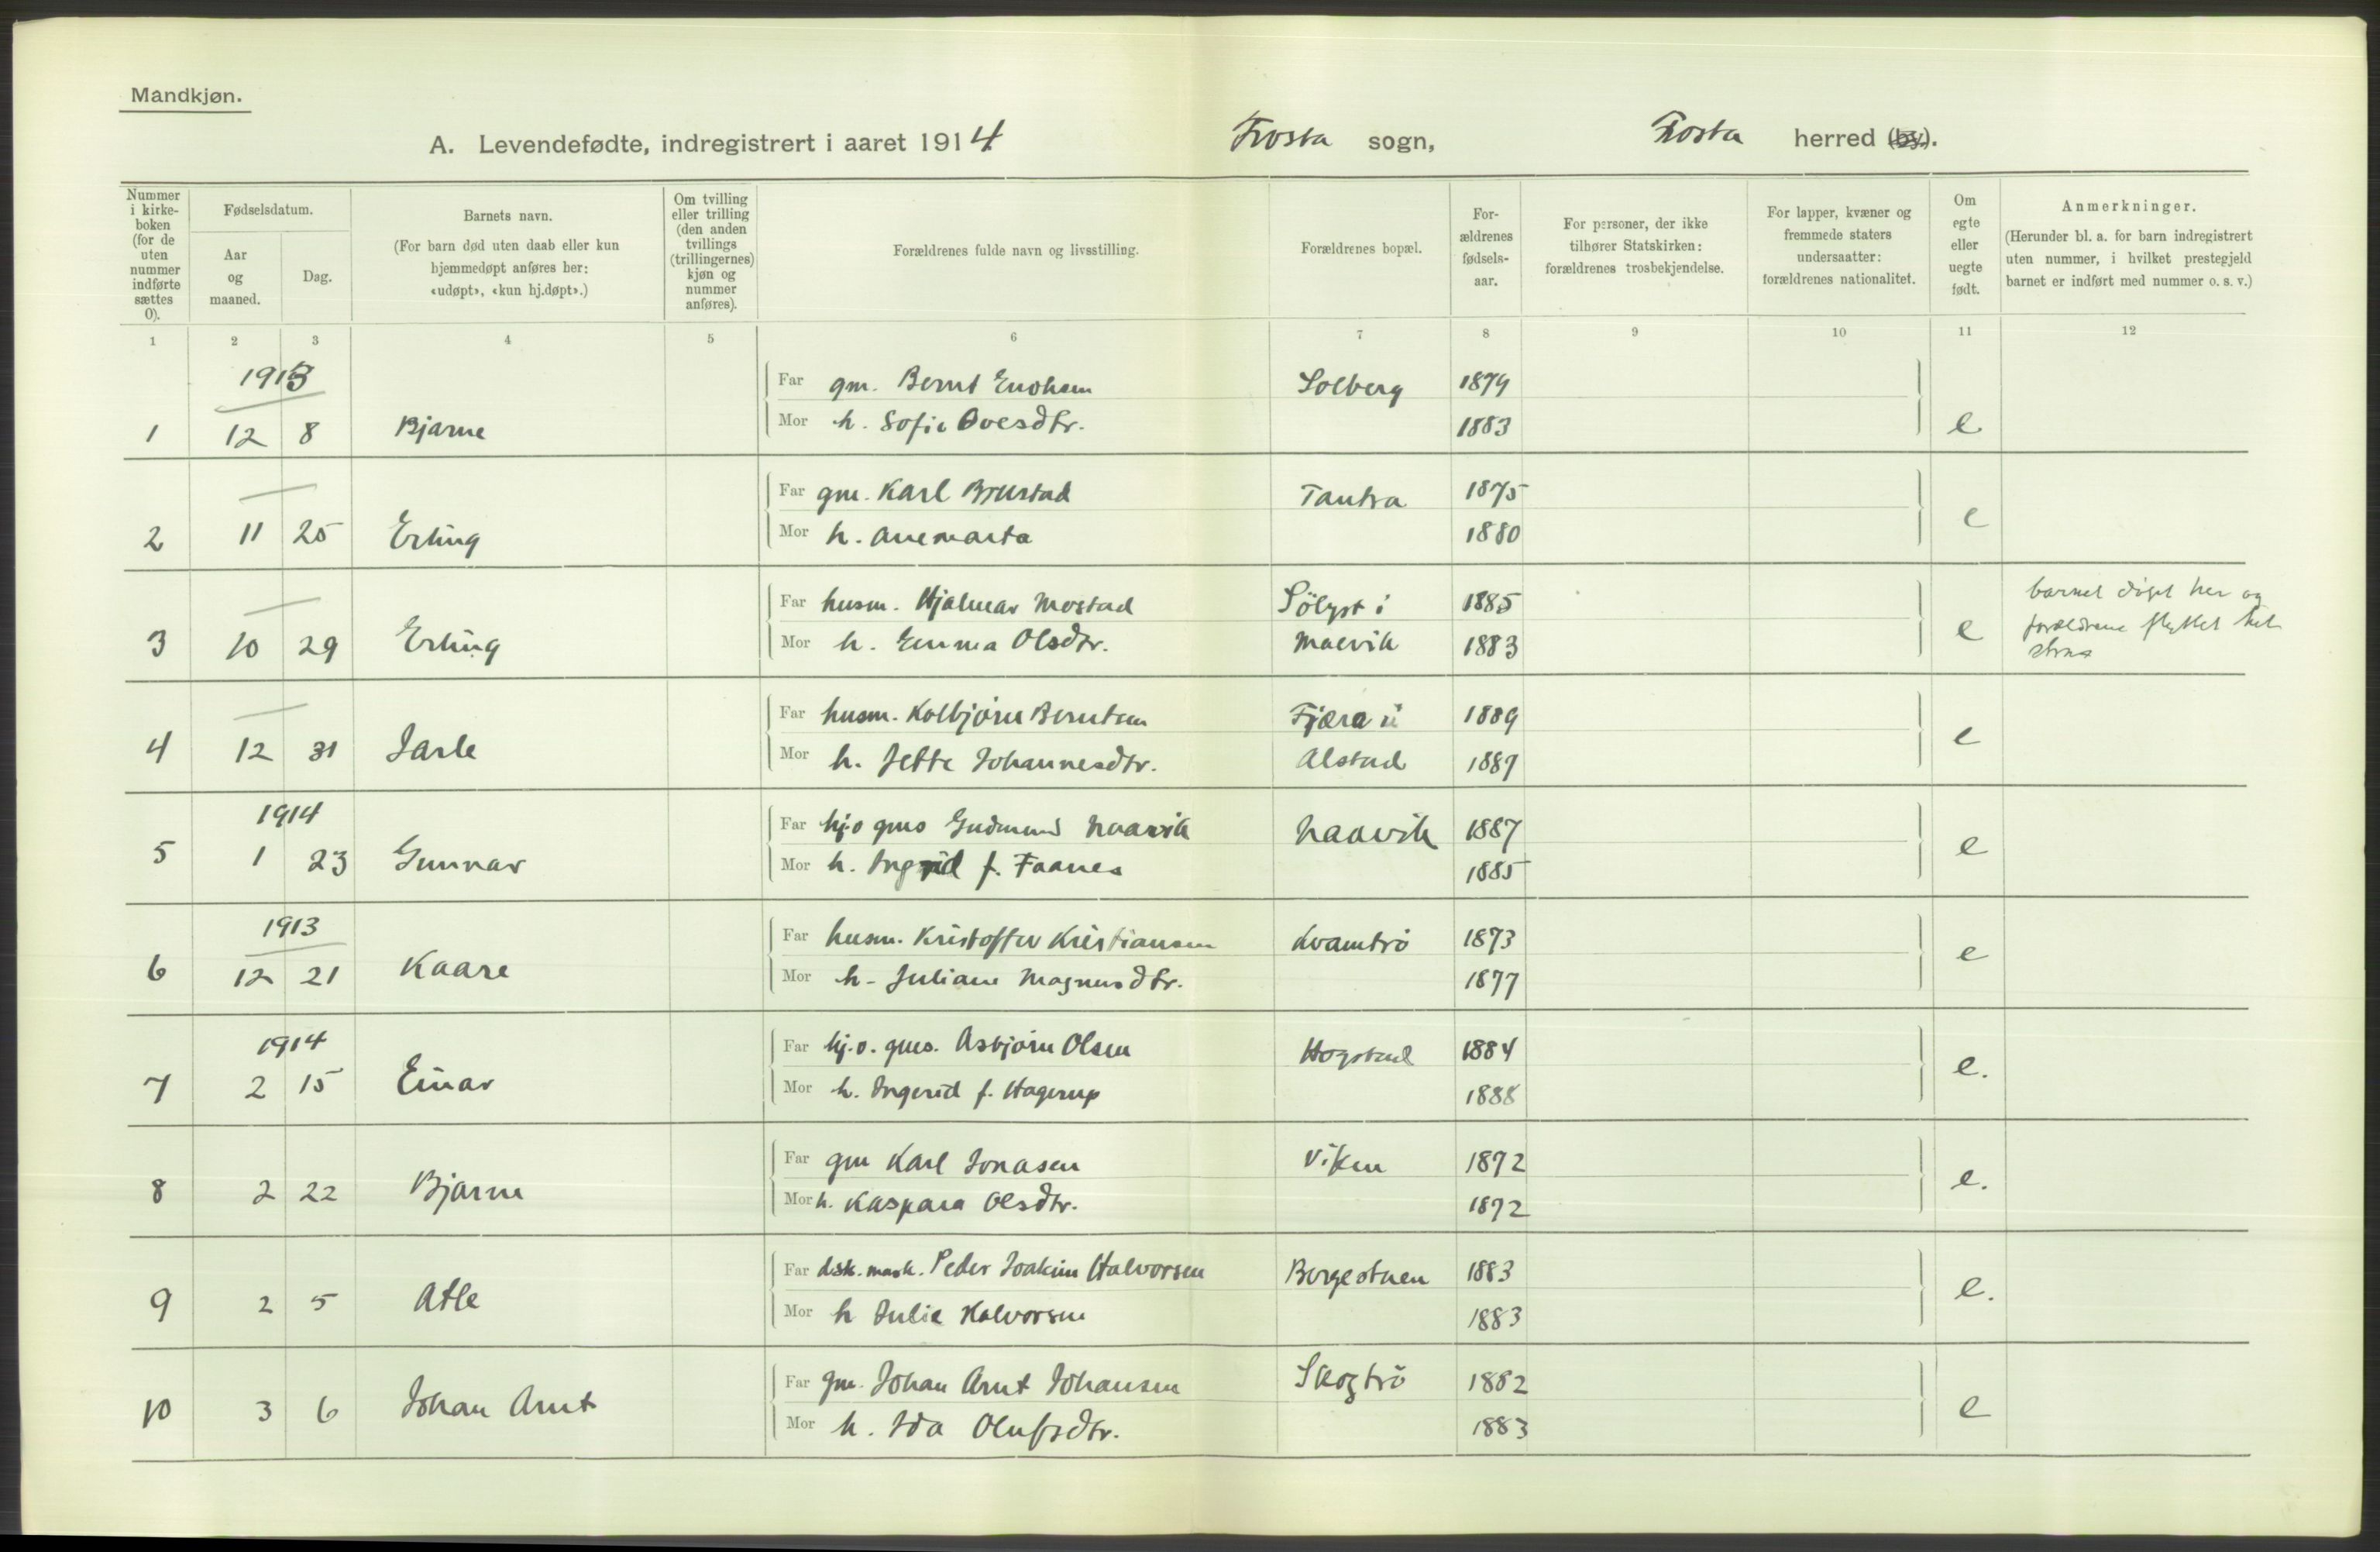 Mandkjøn.
A. Levendefødte, indregistrert i aaret 1914 Frosta sogn, Frosta herred (by).
Nummer i kirke-boken (for de uten nummer indførte sættes 0).
Fødselsdatum.
Aar og maaned.
Dag.
Barnets navn.
(For barn død uten daab eller kun hjemmedøpt anføres her: «udøpt», «kun hj.døpt».)
Om tvilling eller trilling (den anden tvillings (trillingernes) kjøn og nummer anføres).
Forældrenes fulde navn og livsstilling.
Forældrenes bopæl.
For-ældrenes fødsels-aar.
For personer, der ikke tilhører Statskirken: forældrenes trosbekjendelse.
For lapper, kvæner og fremmede staters undersaatter: forældrenes nationalitet.
Om egte eller uegte født.
Anmerkninger.
(Herunder bl. a. for barn indregistrert uten nummer, i hvilket prestegjeld barnet er indført med nummer o. s. v.)
1 2 3 4 5 6 7 8 9 10 11 12
1913
Far gm. Bernt Solberg 1879
1 12 8 Bjarne Mor h. Sofie Ovesdtr. 1883 e
Far gm. Karl Brustad Tautra 1875
2 11 25 Erling Mor h. Anemarta 1880 e
Far husm. Hjalmar Mostad Sölyst i 1885 barnet døpt her og
3 10 29 Erling Mor h. Emma Olsdtr. 1883 e forældrene flyttet
Far husm. Kolbjørn Berntsen Fjæra ü 1889
4 12 31 Jarle Mor h. Jette Johannesdtr. Alstad 1889 e
1914
Far hj.o gms Gudmund Naavik Naavik 1887
5 1 23 Gunnar Mor h. Ingrid f. Faanes 1885 e
1913
Far husm. Kristoffer Kristiansen Kvamtrö 1873
6 12 21 Kaare Mor h. Juliane Magnusdtr. 1877 e
1914
Far hj.o. gms. Asbjørn Olsen Hogstad 1884
7 2 15 Einar Mor h. Ingerid f. Hagerup 1888 e.
Far gm Karl Jonasen Viken 1872
8 2 22 Bjarne Mor h. Kaspara Olsdtr. 1872 e.
Far Peder Joakim Halvorsen Borgestuen 1883
9 2 5 Atle Mor h Julie Halvorsen 1883 e.
Far gm. Johan Arnt Johansen Skogtrö 1882
10 3 6 Johan Arnt Mor h. Ida Olufsdtr. 1883 e